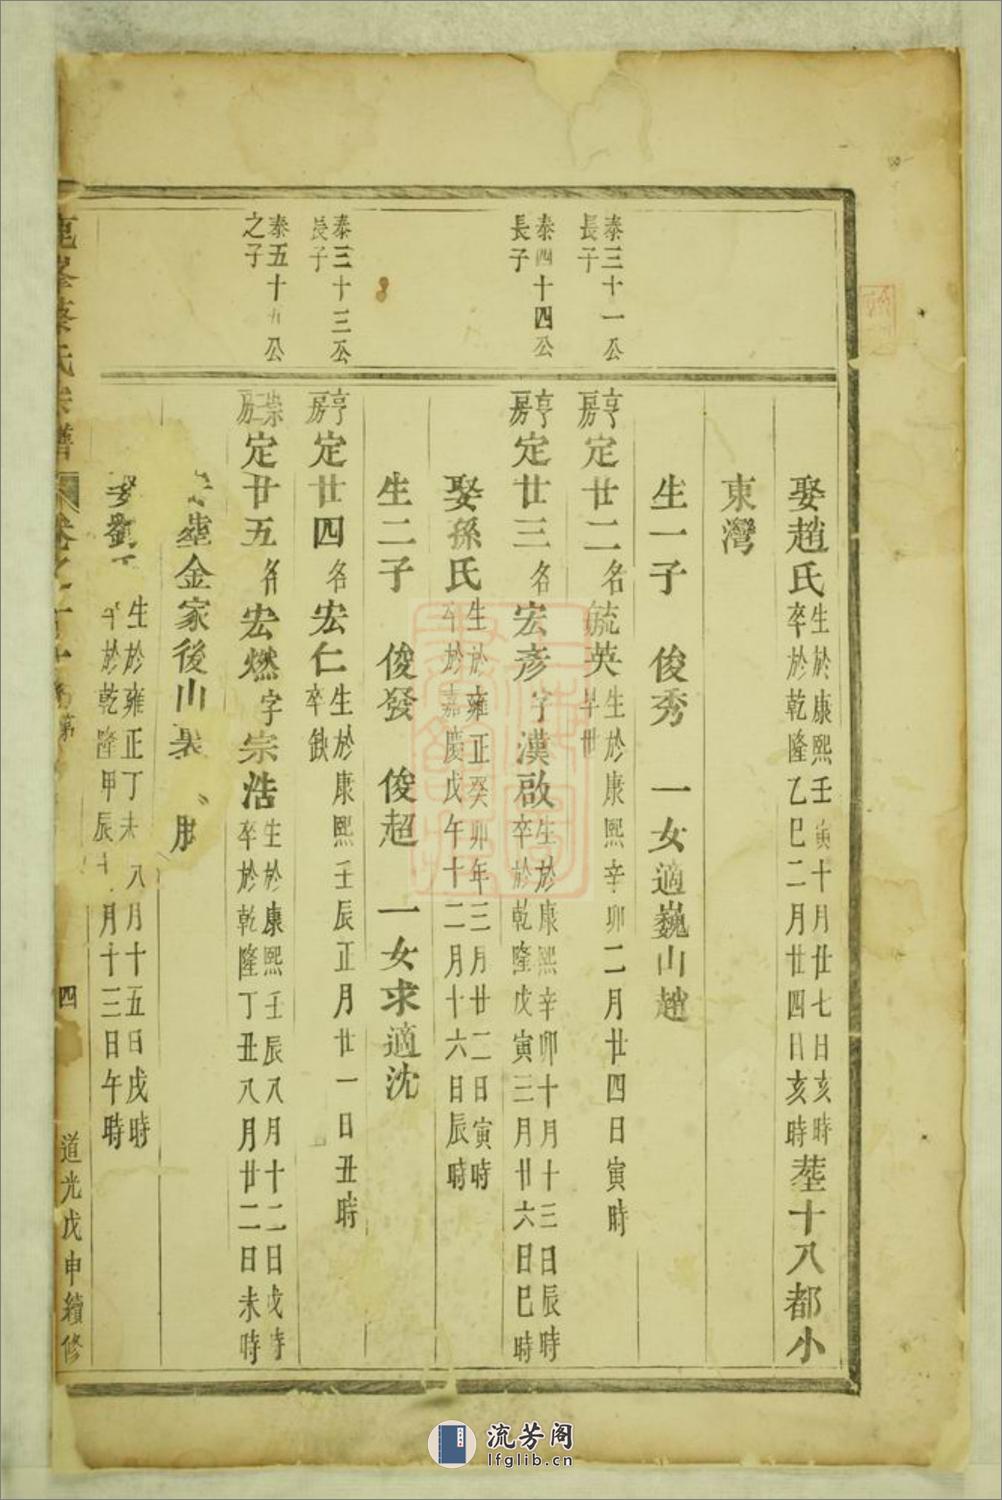 娶趙氏生於康熙壬寅十月廿七日亥時
卒於乾隆乙巳二月廿四日亥時塟十八都小
東灣
生一子 俊秀 一女適巍山趙
泰三十一公
長子
亨房定廿二名毓英生於康熙辛卯二月廿四日寅時
早世
泰四十四公
長子
亨房定廿三名宏彥字漢啟生於康熙辛卯十月十三日辰時
卒於乾隆戊寅三月廿六日巳時
娶孫氏生於雍正癸卯年三月廿二日寅時
卒於嘉慶戊午十二月十六日辰時
生二子 俊發 俊超 一女求適沈
泰三十三公
長子
亨房定廿四名宏仁生於康熙壬辰正月廿一日丑時
卒缺
泰五十九公
之子
定廿五名宏燃字宗浩生於康熙壬辰八月十二日戌時
卒於乾隆丁丑八月廿二日未時
塟金家後山
劉 生於雍正丁未八月十五日戌時
於乾隆甲辰 月十三日午時
蔡氏宗譜 卷之 第 四 道光戊申續修
流芳阁
lfglib.cn